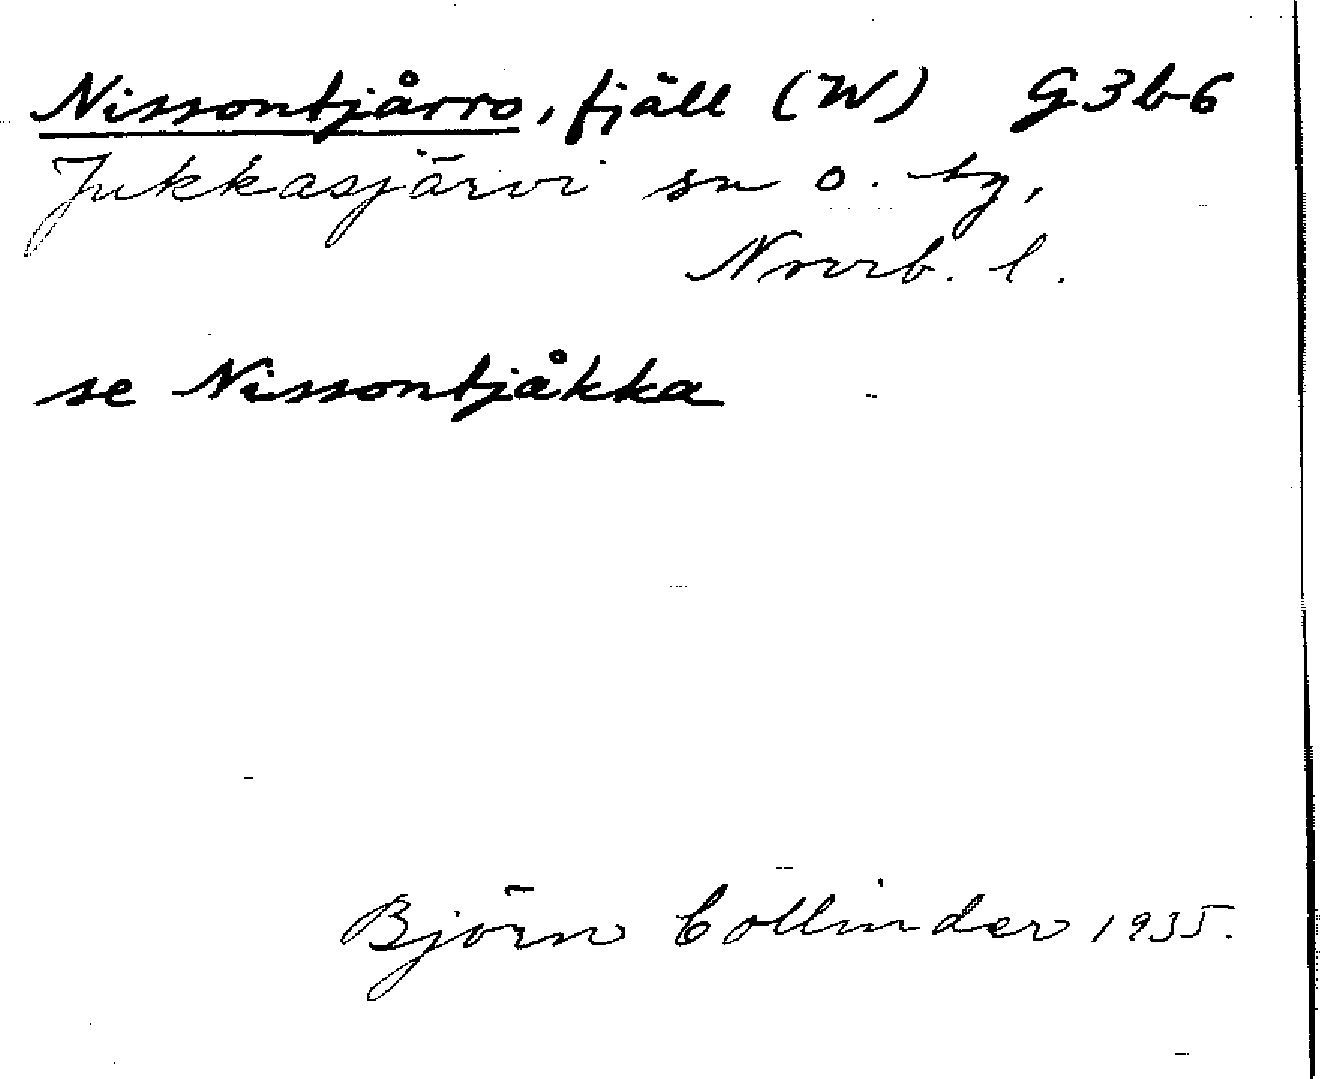 Nissontjårro, fjäll (W) G3b6
Jukkasjärvi sn o. tg,
Norrb. l.
se Nissontjåkka
Björn Collinder 1935.